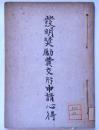 發明奨勵費交付申請心得